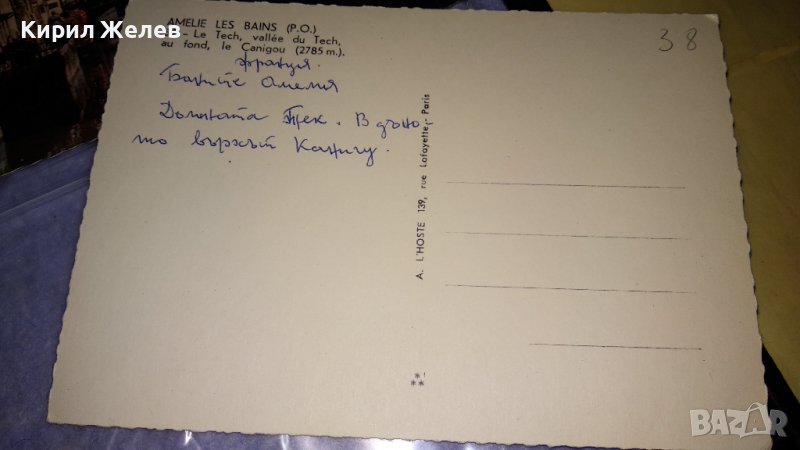 Кирил Желев
AMELIE LES BAINS (P.O.)
- Le Tech, vallée du Tech,
au fond, le Canigou (2785 m.).
38
Франция.
Баните Амелия
Долината Тек. В дъно-
то върхът Канигу.
A. L'HOSTE 139, rue Lafayette - Paris
BAZAR